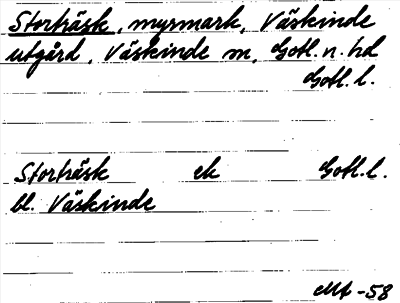 Storträsk, myrmark, Väskinde
utgård, Väskinde sn, Gotl. n. hd
Gotl. l.
Storträsk ek Gotl. l.
bl. Väskinde
-58